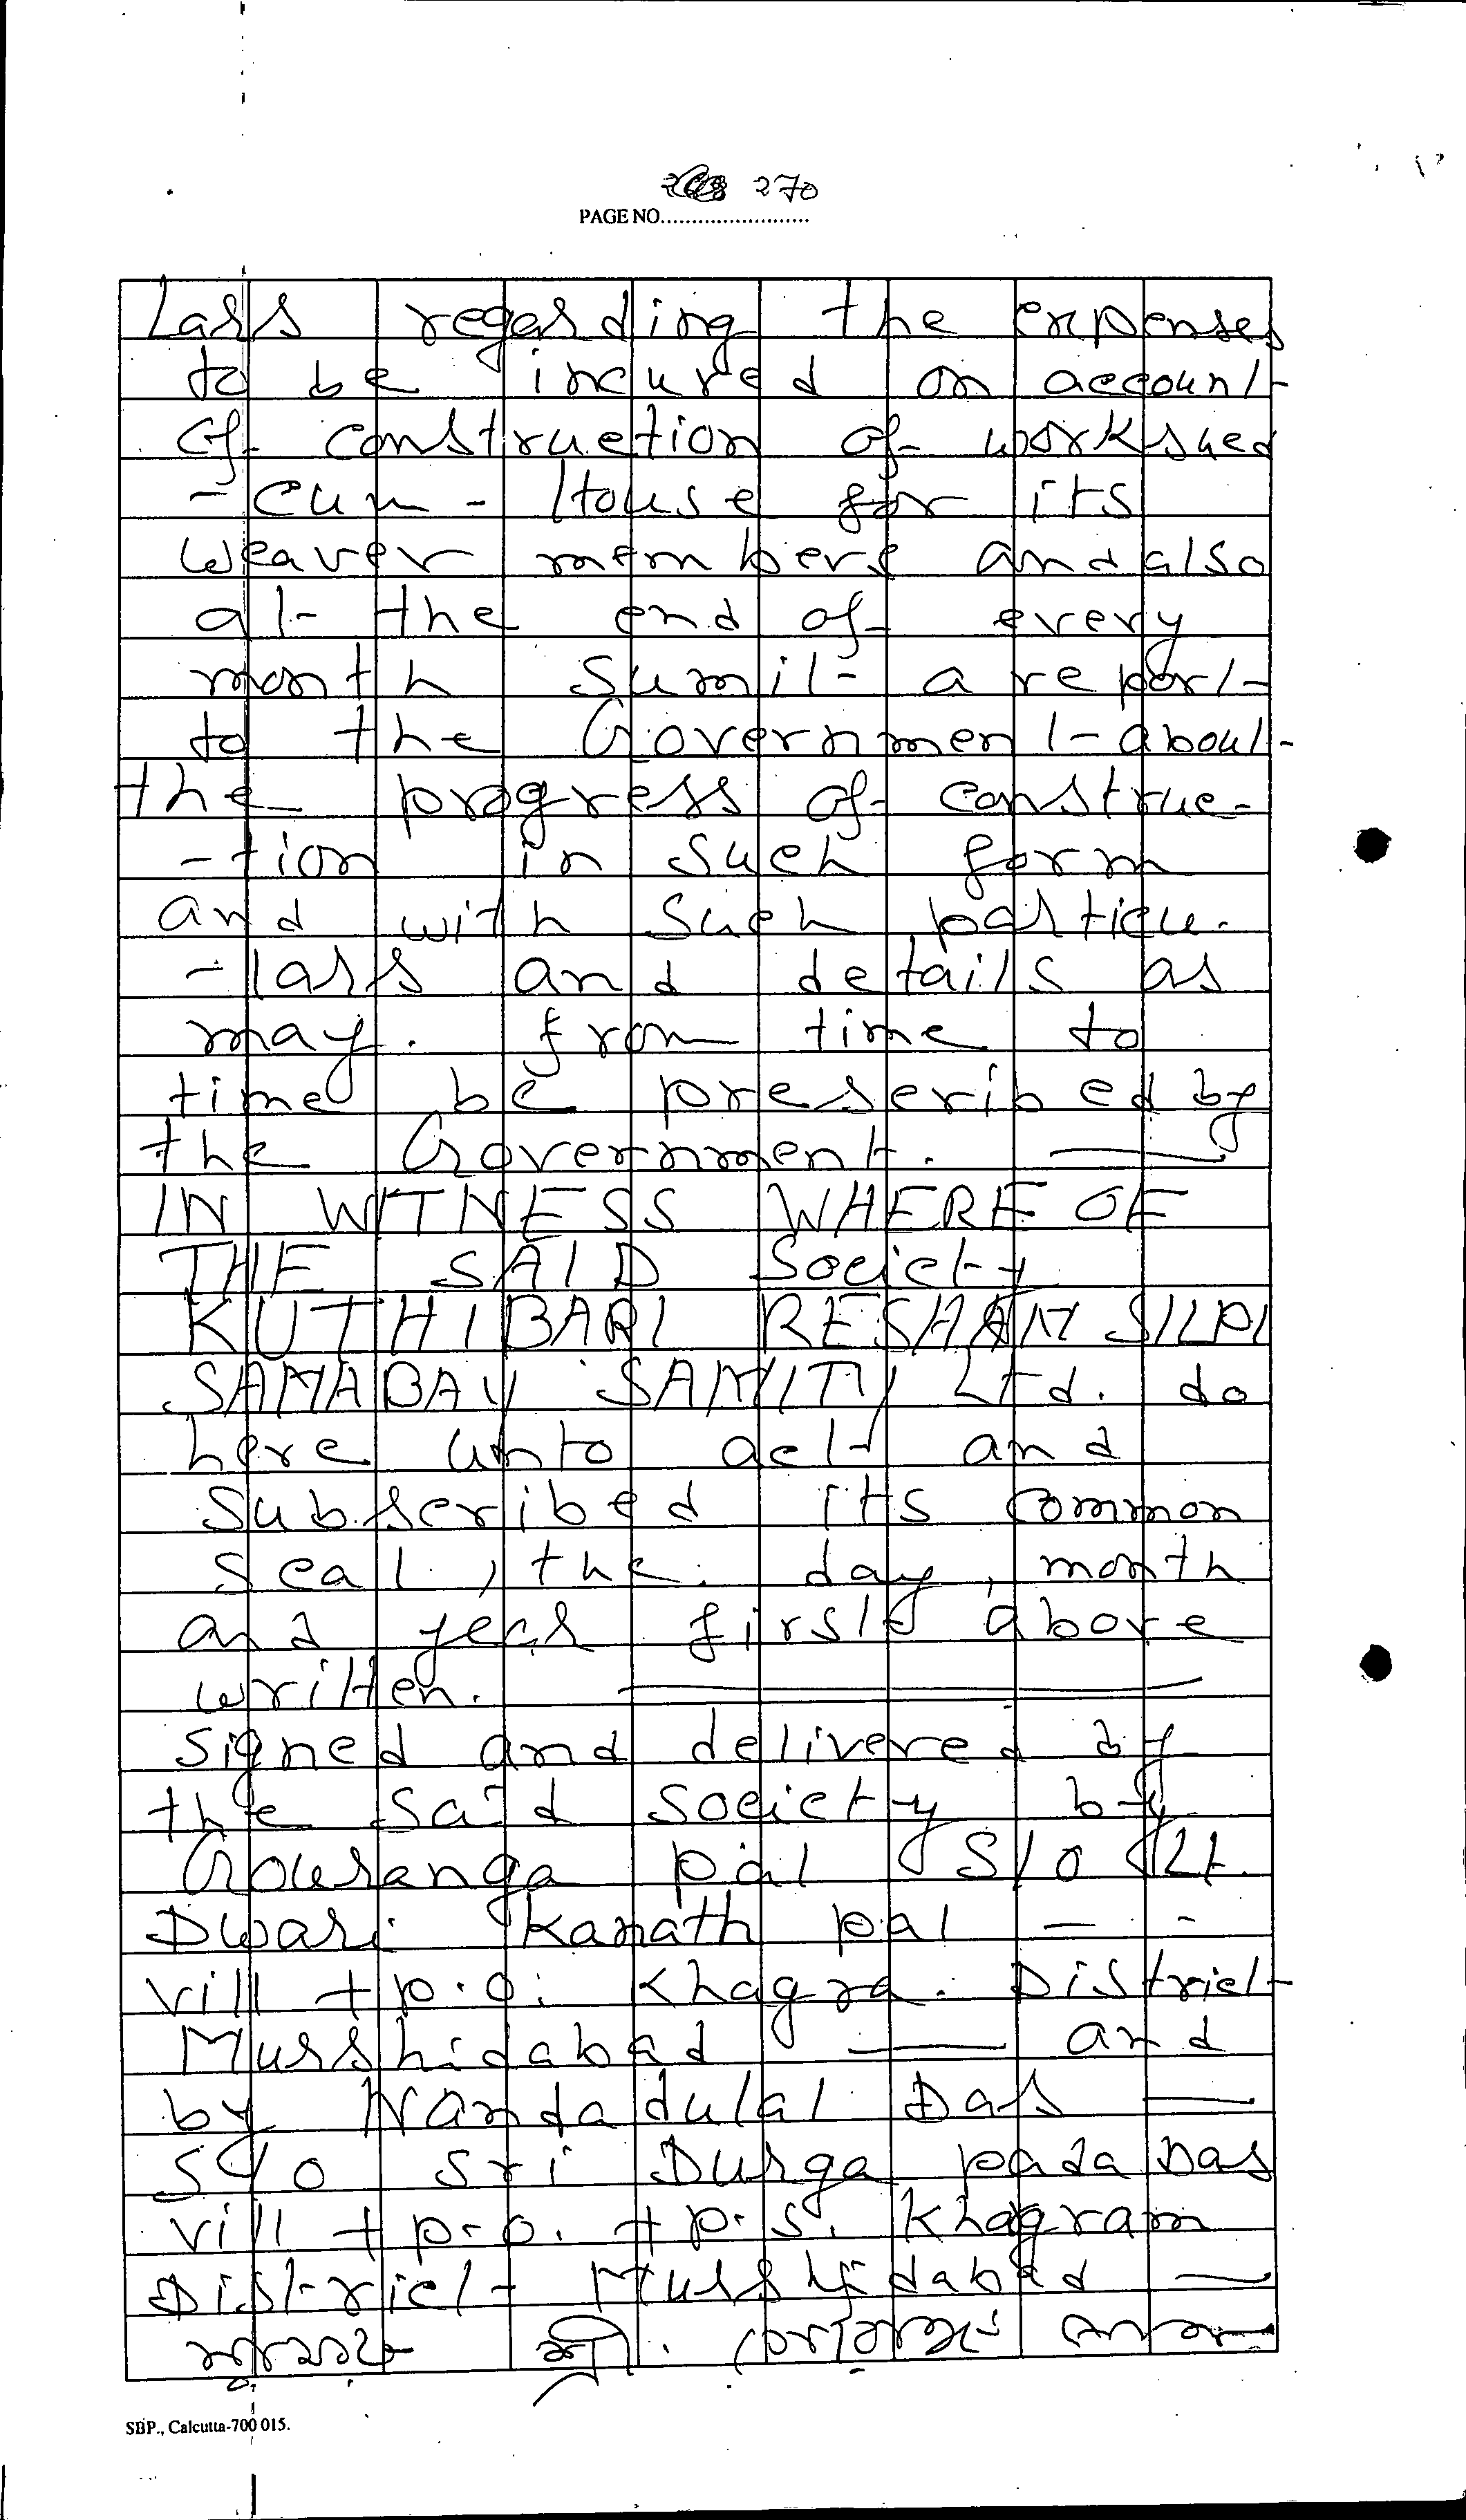 270
PAGE NO........................
lars regarding the expenses
to be incured on account
of construction of workshed
-cum-House for its
weaver members and also
at the end of every
month sumit a report
to the Government about
the progress of construc-
-tion in such form
and with such particu-
-lars and details as
may. from time to
time be prescribed by
the Government.
IN WITNESS WHERE OF
THE SAID Society
KUTHIBARI RESHAM SILPI
SAMABAY SAMITY Ltd. do
here unto and
subscribed its common
seal, the day, month
and year first above
written.
signed and delivered by
the said society by
Gouranga pal S/o Lt.
Dwari kanath pal - -
vill + p.o. Khagra. District
Murshidabad — and
by Nandadulal Das —
S/o Sri Durga pada Das
vill + p.o. + p.s. Khagram
District- Murshidabad —
SBP., Calcutta-700 015.